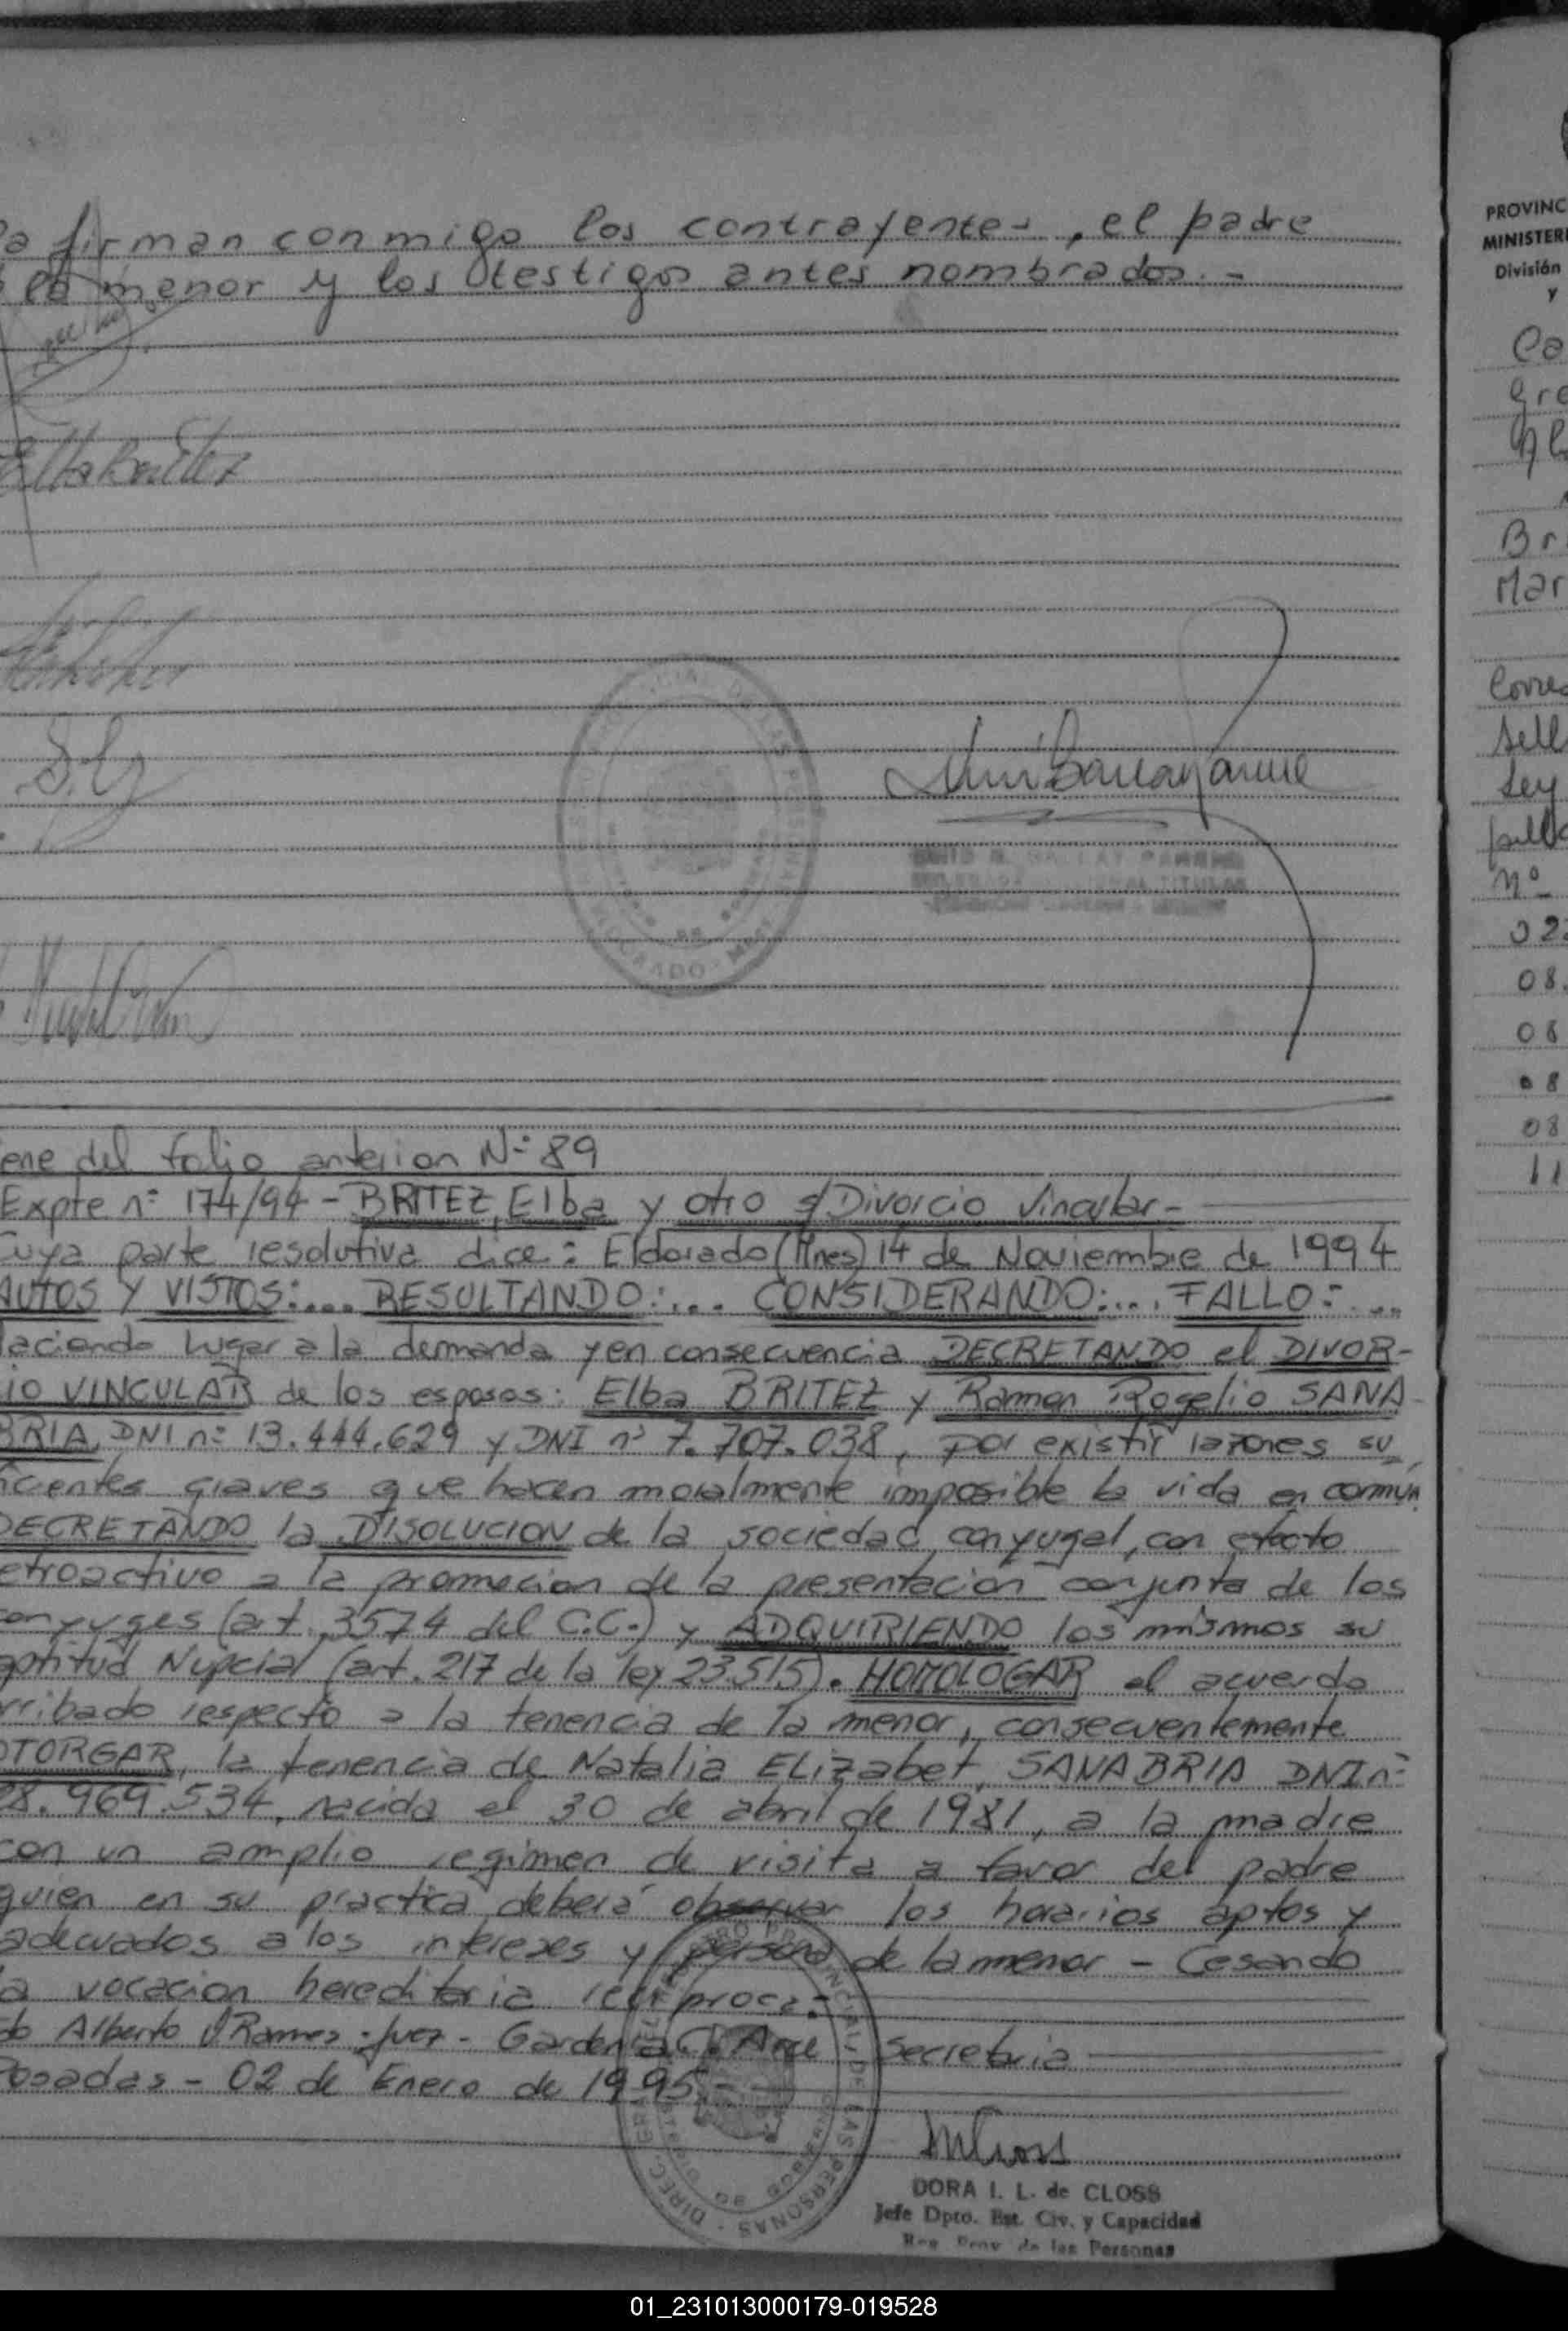 firman conmigo los contrayentes, el padre
la menor y los testigos antes nombrados.-
Elba Britez
ene del folio anterior Nº 89
Expte nº 174/94 - BRITEZ, Elba y otro s/Divorcio Vincular-
Cuya parte resolutiva dice: Eldorado (Mnes) 14 de Noviembre de 1994
AUTOS Y VISTOS:... RESULTANDO:... CONSIDERANDO:... FALLO:...
aciendo lugar a la demanda y en consecuencia DECRETANDO el DIVOR-
IO VINCULAR de los esposos: Elba BRITEZ y Ramon Rogelio SANA-
BRIA, DNI nº 13.444.629 y DNI nº 7.707.038, por existir razones su
icientes graves que hacen moralmente imposible la vida en común
DECRETANDO la DISOLUCION de la sociedad conyugal, con efecto
etroactivo a la promocion de la presentacion conjunta de los
onyuges (art. 3574 del C.C.) y ADQUIRIENDO los mismos su
aptitud Nupcial (art. 217 de la ley 23.515). HOMOLOGAR el acuerdo
rribado respecto a la tenencia de la menor, consecuentemente
OTORGAR, la tenencia de Natalia ELizabet, SANABRIA DNI nº
28.969.534, nacida el 30 de abril de 1981, a la madre
con un amplio regimen de visita a favor del padre
quien en su practica deberá observar los horarios aptos y
adecuados a los intereses y persona de la menor - Cesando
a vocacion hereditaria reciproca.-
do Alberto V. Ramos - Juez - Gardenia C. Arce Secretaria
Posadas - 02 de Enero de 1995.-
DORA I. L. de CLOSS
Jefe Dpto. Est. Civ. y Capacidad
Reg. Prov. de las Personas
PROVINC
MINISTERI
División
y
Ca
Gre
Br
Mar
Corres
Sell
Ley
Nº
02
08.
08
08
08
11
01_231013000179-019528